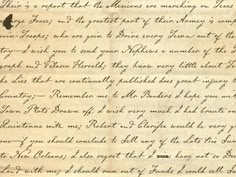 Their is a report that the Mexicans are marching on Texas
large Force; and the greatest part of their Army is comp
Troops; who are goin to Drive every Texan out of the
I wish you to send your Nephews a number of the T
graph and Texas Herrold; they have very little about T
he Lies that are continually published does great injury t
Country;— Remember me to Mr I hope you
Town Plats Drawn off. I wish very much I had
with me; Robert and would be very g
one— if you should conclude to Sell any of the Lots
to New Orleans; I also regret that I have not so
Lent with me; I should one out of Funds I could sell